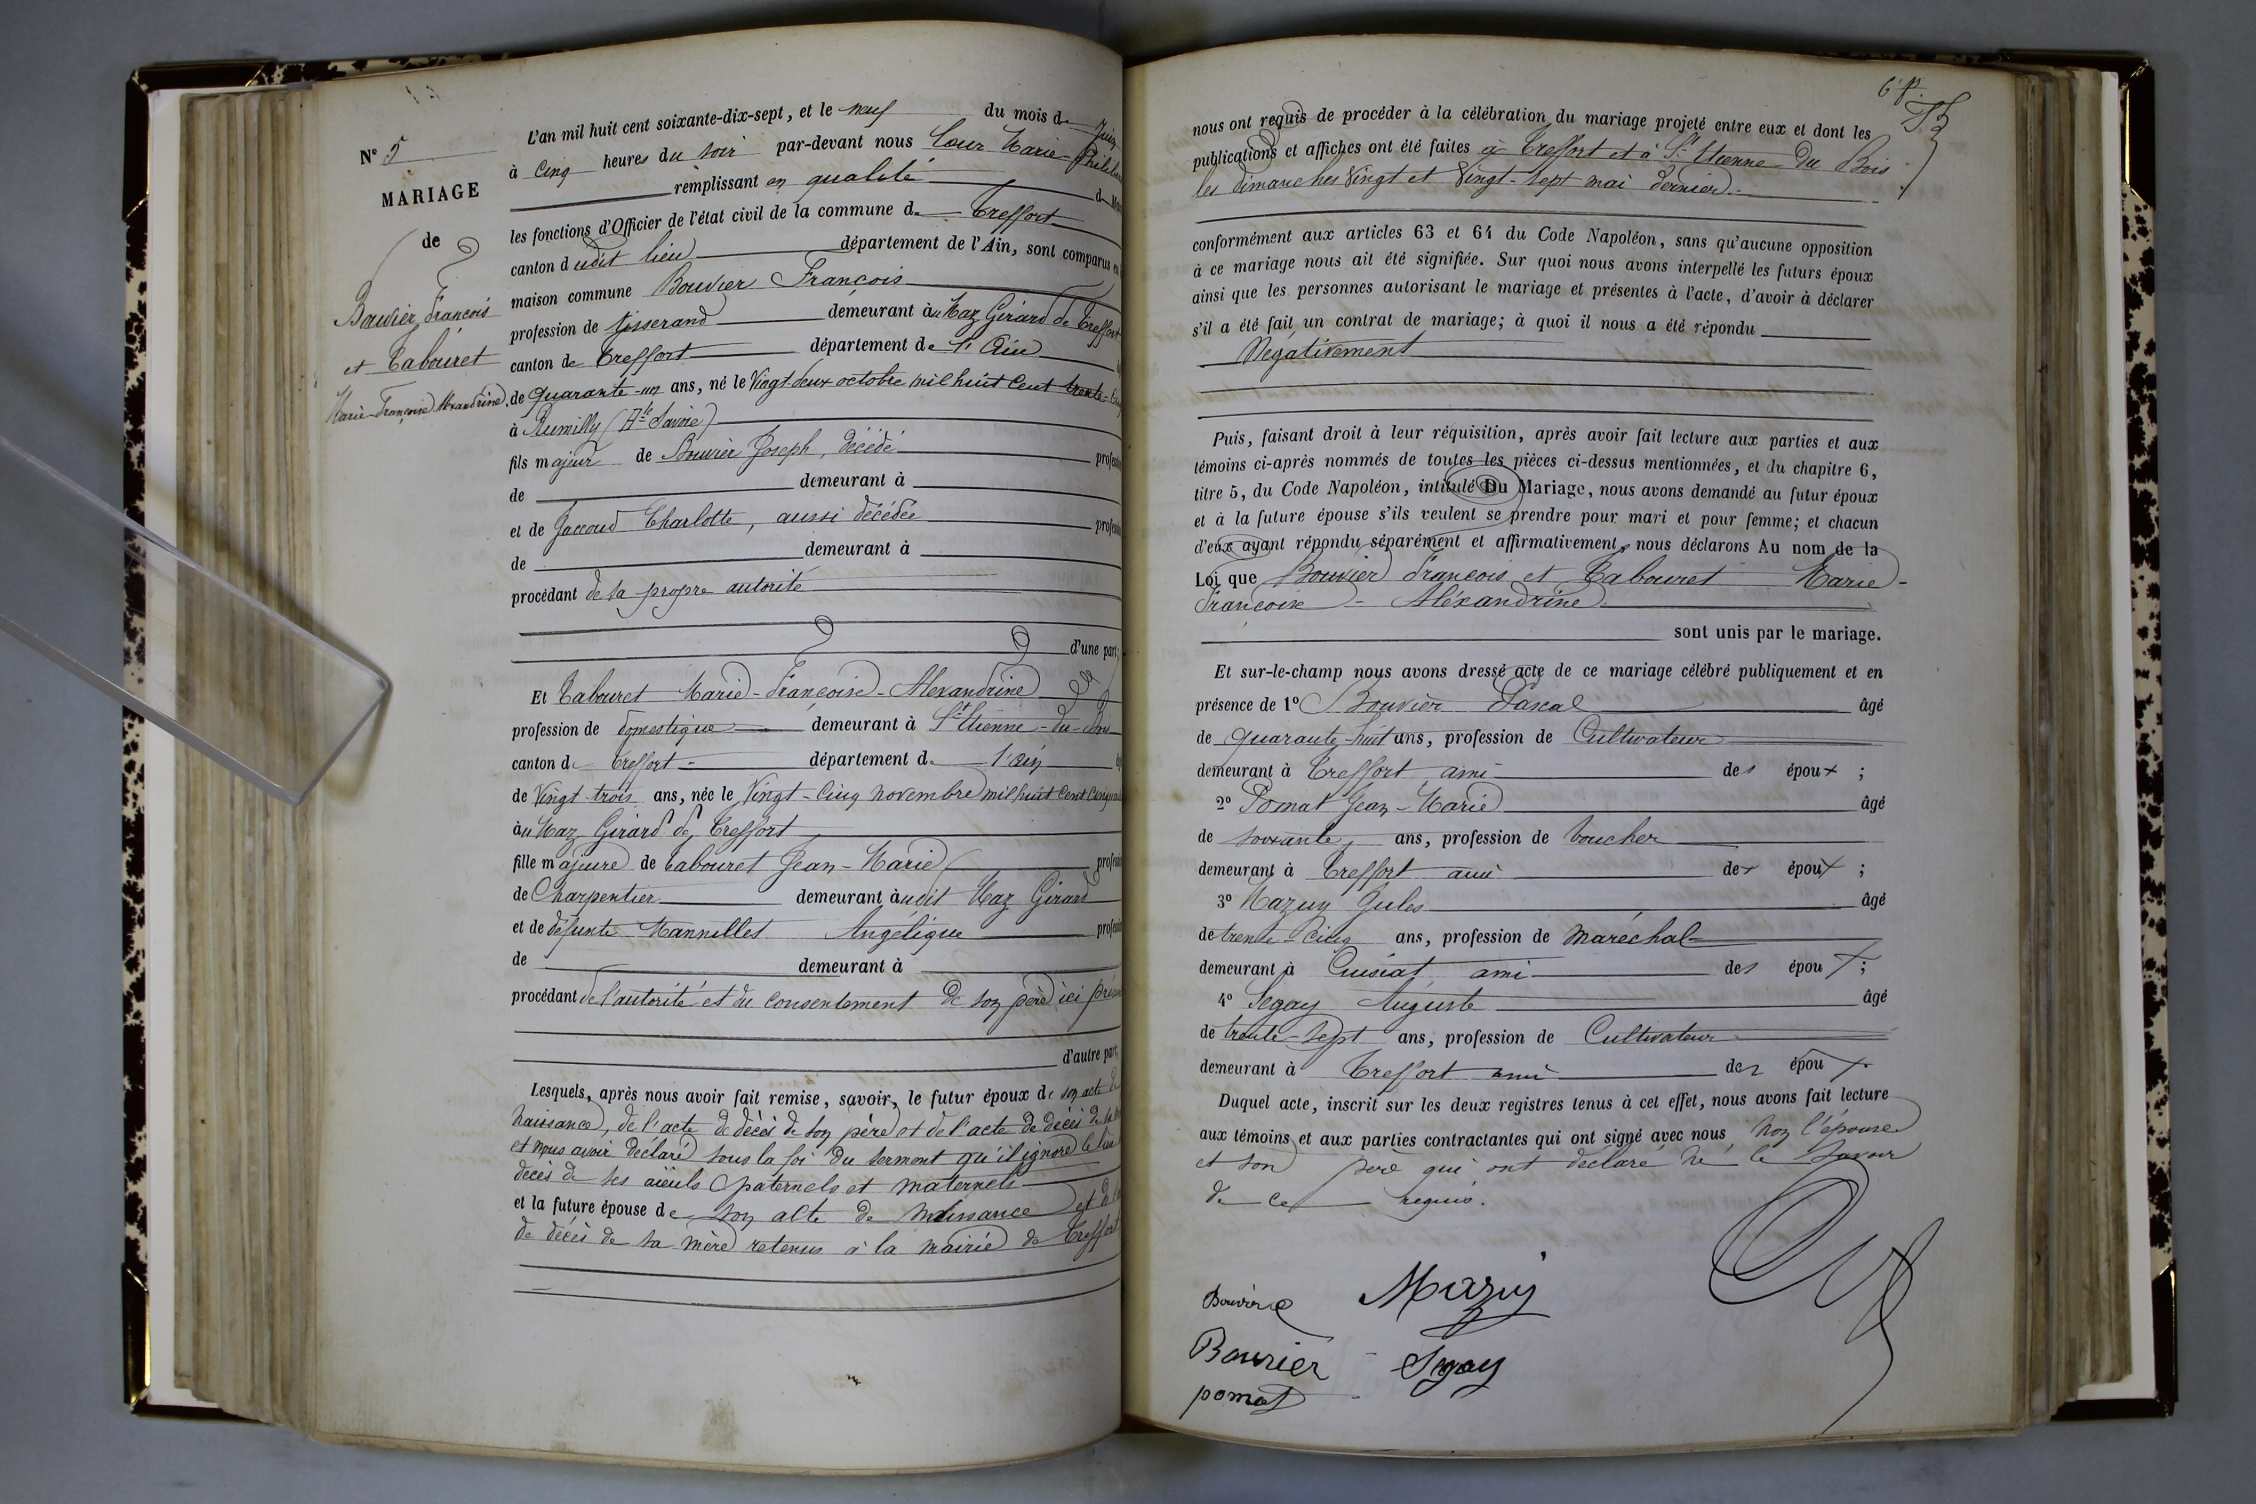 N° 5
MARIAGE
de
Bouvier François
et Tabouret
Marie-Françoise Alexandrine.
L'an mil huit cent soixante-dix-sept, et le neuf du mois de Juin
à cinq heures du soir par-devant nous Cour Marie
remplissant en qualité d
les fonctions d'Officier de l'état civil de la commune de Treffort
canton dudit lieu département de l'Ain, sont comparus en
maison commune Bouvier François
profession de Tisserand demeurant au Maz Girard de Treffort
canton de Treffort département de l'Ain
de quarante-un ans, né le Vingt-deux octobre mil huit cent trente-
à Rumilly (Hte Savoie)
fils majeur de Bouvier Joseph, décédé
de demeurant à
et de Jaccoud Charlotte, aussi décédée
de demeurant à
procédant de sa propre autorité
d'une part,
Et Tabouret Marie-Françoise-Alexandrine
profession de domestique demeurant à St Etienne-du-Bois
canton de Treffort département de l'ain
de Vingt-trois ans, née le Vingt-cinq novembre mil huit cent
au Maz Girard de Treffort
fille majeure de Tabouret Jean-Marie
de Charpentier demeurant audit Maz Girard
et de défunte Mannillet Angélique
de demeurant à
procédant de l'autorité et du consentement de son père ici
d'autre part,
Lesquels, après nous avoir fait remise, savoir, le futur époux de son acte de
naissance, de l'acte de décès de son père et de l'acte de décès de sa
et nous avoir déclaré sous la foi du serment qu'il ignore le lieu
décès de ses aïeuls paternels et maternels
et la future épouse de son acte de naissance et de
de décès de sa mère retenus à la mairie de Treffort
nous ont requis de procéder à la célébration du mariage projeté entre eux et dont les
publications et affiches ont été faites à Treffort et à St Etienne du Bois
les dimanches Vingt et Vingt-sept mai dernier.
conformément aux articles 63 et 64 du Code Napoléon, sans qu'aucune opposition
à ce mariage nous ait été signifiée. Sur quoi nous avons interpellé les futurs époux
ainsi que les personnes autorisant le mariage et présentes à l'acte, d'avoir à déclarer
s'il a été fait un contrat de mariage; à quoi il nous a été répondu
Négativement
Puis, faisant droit à leur réquisition, après avoir fait lecture aux parties et aux
témoins ci-après nommés de toutes les pièces ci-dessus mentionnées, et du chapitre 6,
titre 5, du Code Napoléon, intitulé Du Mariage, nous avons demandé au futur époux
et à la future épouse s'ils veulent se prendre pour mari et pour femme; et chacun
d'eux ayant répondu séparément et affirmativement, nous déclarons Au nom de la
Loi que Bouvier François et Tabouret Marie-
Françoise-Aléxandrine
sont unis par le mariage.
Et sur-le-champ nous avons dressé acte de ce mariage célébré publiquement et en
présence de 1° Bouvier Pascal âgé
de quarante-huit ans, profession de Cultivateur
demeurant à Treffort ami des époux ;
2° Pomat Jean-Marie âgé
de soixante ans, profession de boucher
demeurant à Treffort ami des époux ;
3° Mazuy Jules âgé
de trente-cinq ans, profession de maréchal
demeurant à Cuisiat ami des époux ;
4° Segay Auguste âgé
de trente-sept ans, profession de Cultivateur
demeurant à Treffort ami des époux.
Duquel acte, inscrit sur les deux registres tenus à cet effet, nous avons fait lecture
aux témoins et aux parties contractantes qui ont signé avec nous, non l'épouse
et son père qui ont déclaré ne le savoir
de ce requis.
Mazuy
Bouvier Segay
pomat